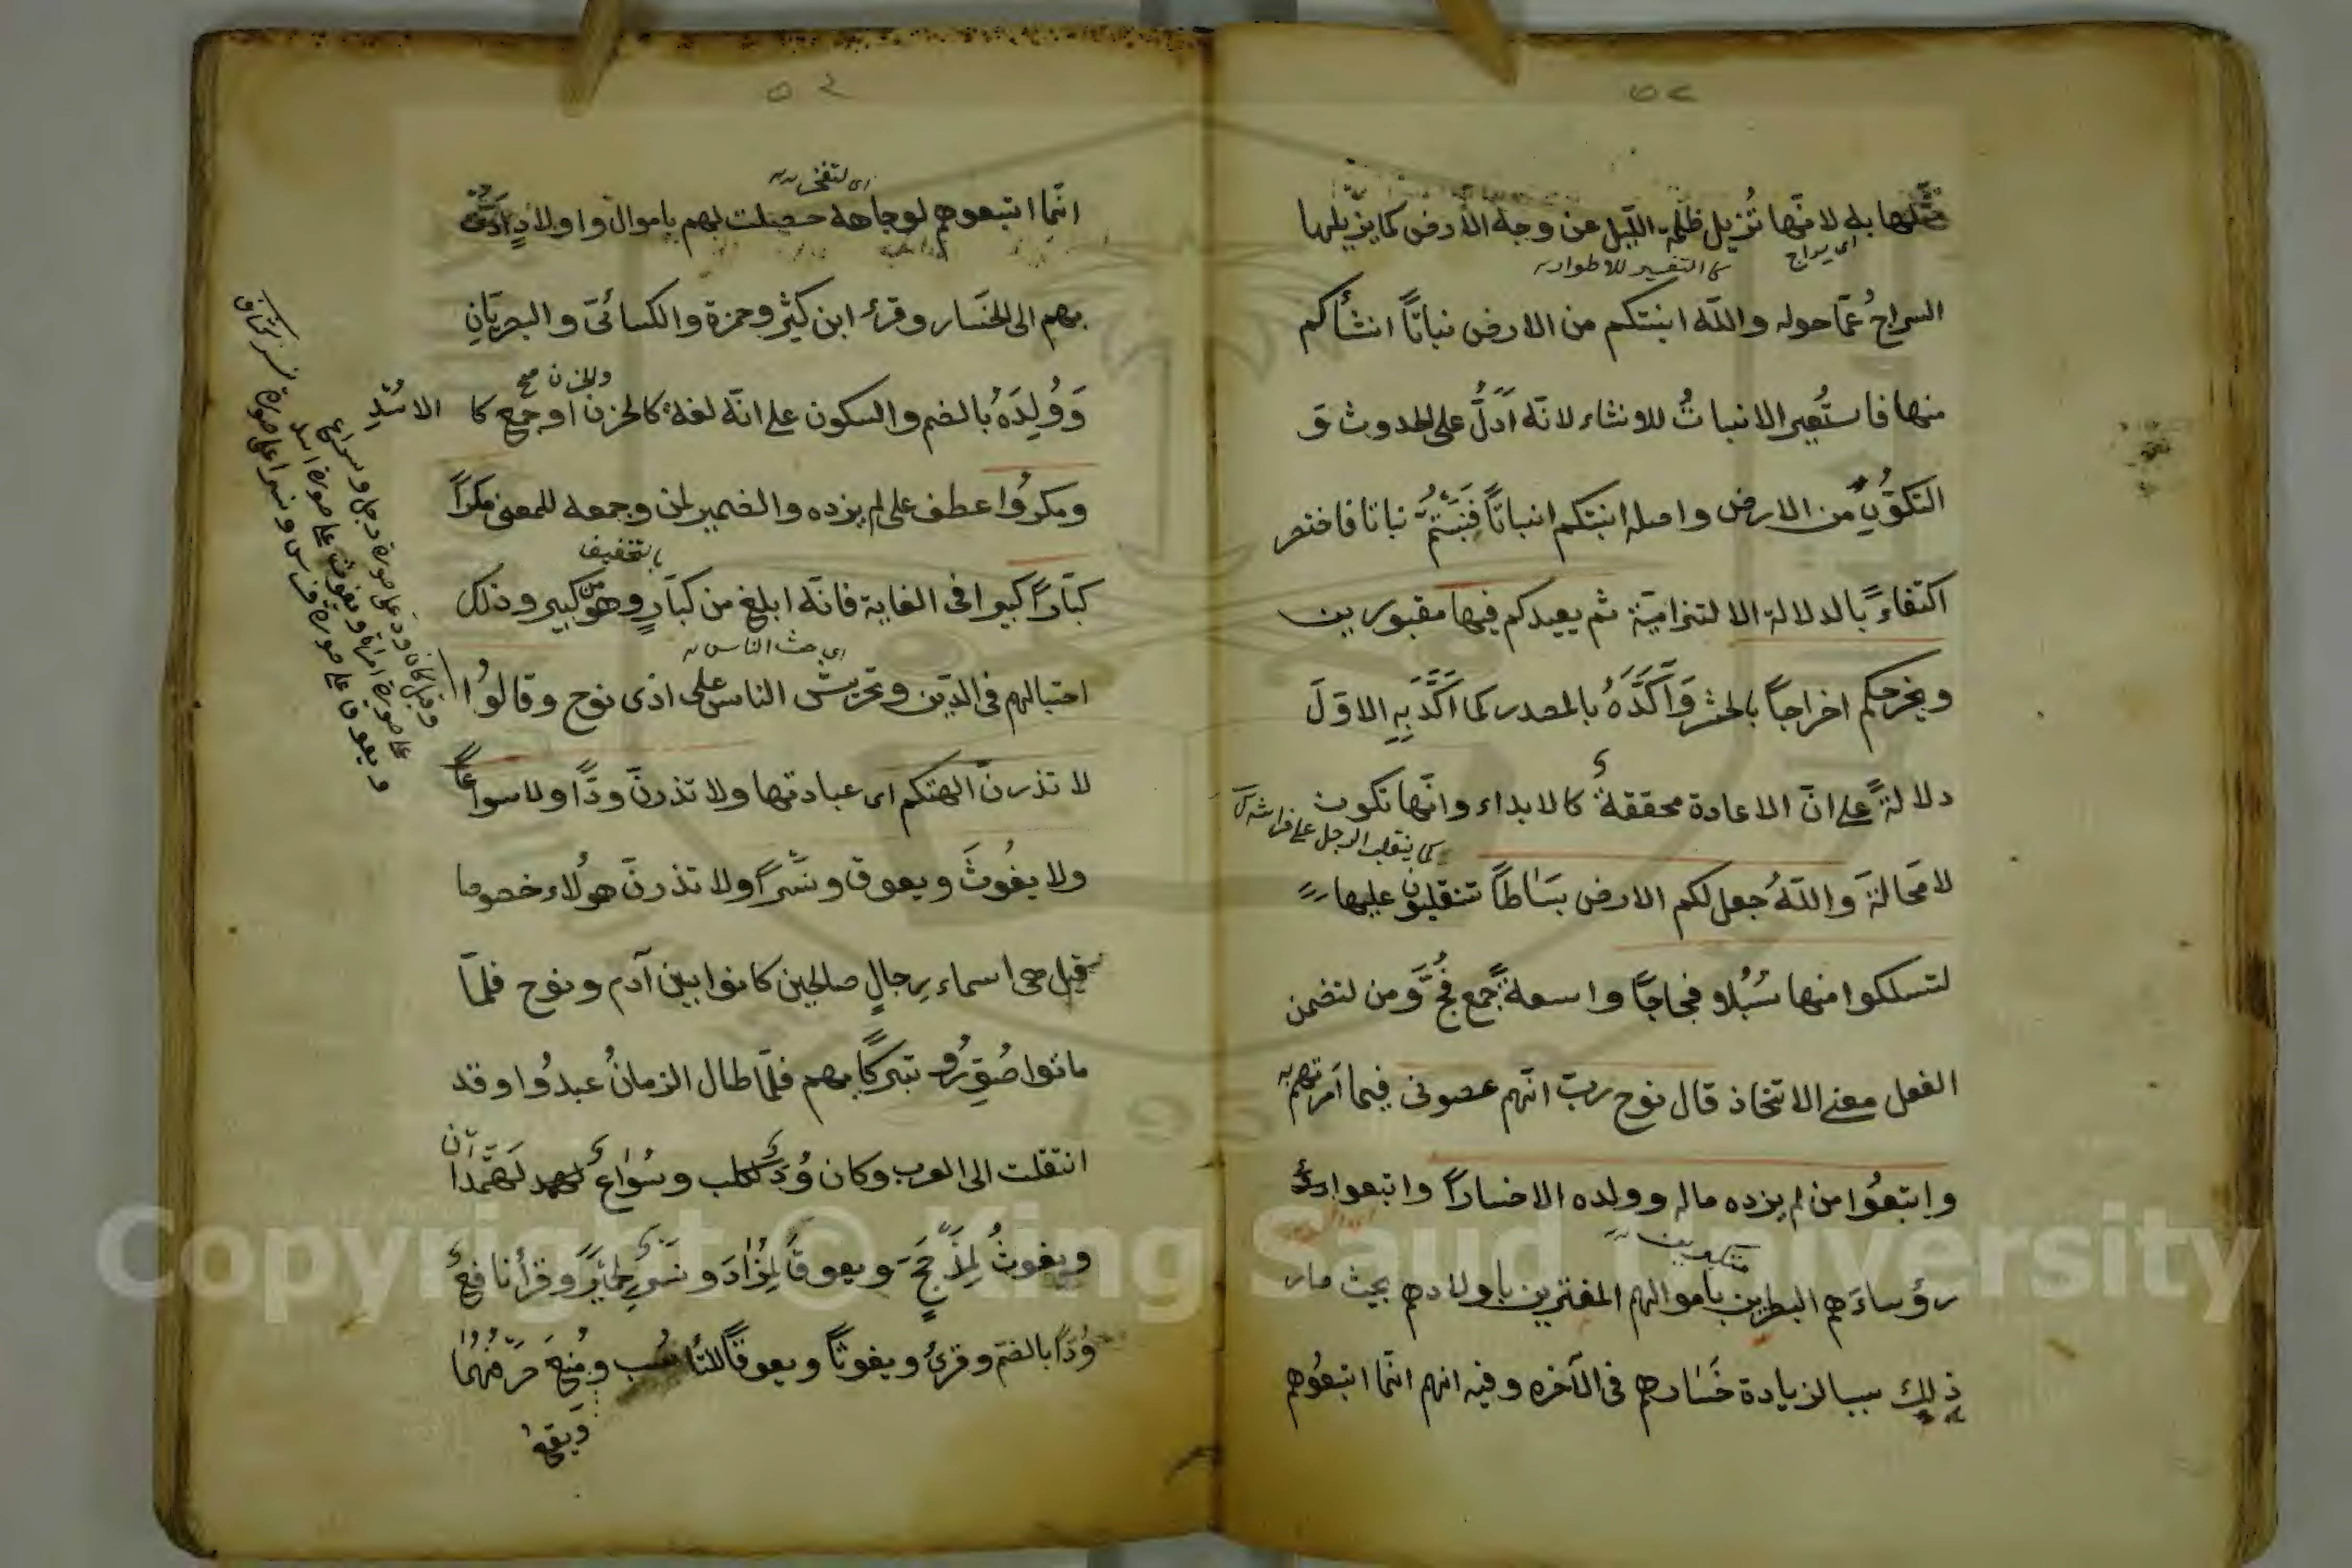 ٥٢
مثلها به لانّها تُزيل ظلمة اللّيل عن وجه الأرض كما يزيلها
اى سراج
السراجُ عمّا حوله والله انبتكم من الارض نباتاً انشأكم
منها فاستُعير الانباتُ للانشاء لانّه اَدلُّ على الحدوث وَ
التكوُّنِ من الارض واصله انبتكم انباتاً فنَبَتُّمْ نباتا فاختصر
اكتفاءً بالدلالة الالتزاميّة ثم يعيدكم فيها مقبورين
ويخرجكم اخراجاً بالحشر وَاَكَّدَهُ بالمصدر كما اَكَّدَ بِهِ الاوّلَ
دلالةً على انّ الاعادة محققةٌ كالابداء وانّها تكون
كما يتقلب الرجل على فراشه
لا مَحالةَ واللّهُ جعل لكم الارض بسَاطاً تتقلبون عليها
لتسلكوا منها سُبُلا فجاجًا واسعةً جمع فجٍّ ومن لتضمن
الفعل معنى الاتخاذ قال نوح ربّ انّهم عصونى فيما اَمرتهم به
وابتعُوا من لم يزده ماله وولده الا خساراً واتبعوا
متكبرين
رؤساءَهم البطرين باموالهم المغترين باولادهم بحيث صار
ذلك سببا لزيادة خَسَارهم فى الآخره وفيه انهم انّما اتبعُوهم
٥٣
انّما اتبعوهم لوجاهة حصلت لهم باموال واولاد اَدَّتْ
بهم الى الخَسَار وقرئ ابن كثير وحمزة والكسائىّ والبصريّانِ
وَوُلِدَهُ بالضم والسكون على انّه لغةٌ كالحزن او جمع كا الاُسْدِ
والحزن صح
ومكرُوا عطف على لم يزده والضمير لمن وجمعه للمعنى مكراً
بالتخفيف
كبّاراً كبيرا فى الغاية فانّه ابلغ من كبَارٍ وهو من كبير وذلك
اى حث الناس
احتيالهم فى الدّين وتحريش الناس على اذى نوح وقالُوا
لا تذرنّ الهتكم اى عبادتها ولا تذرنّ ودًّا ولا سواعاً
ولا يغُوثَ ويعوق ونسْراً ولا تذرنّ هولاء خصوصا
قيل هى اسماء رجالٍ صالحين كانوا بين آدم ونوح فلمّا
ماتوا صُوِّرُو تبركاً بهم فلمّا طال الزمانُ عبدُوا وقد
انتقلت الى العرب وكان وُدٌّ لكلب وسُوَاعٌ لهمدان
ويغوثُ لِمَذْحَجٍ ويعوقُ لِمُرَادَ ونَسْرٌ لحِمْيَرَ وقرأ نافعٌ
وُدًّا بالضم وقرئ ويغوثًا ويعوقًا للتناسُب ومُنِعَ صرفُهُمَا
وقيل كان ود على صورة رجل وسواع
على صورة امراة ويغوث على صورة اسد
ويعوق على صورة فرس ونسر على صورة نسر كشاف